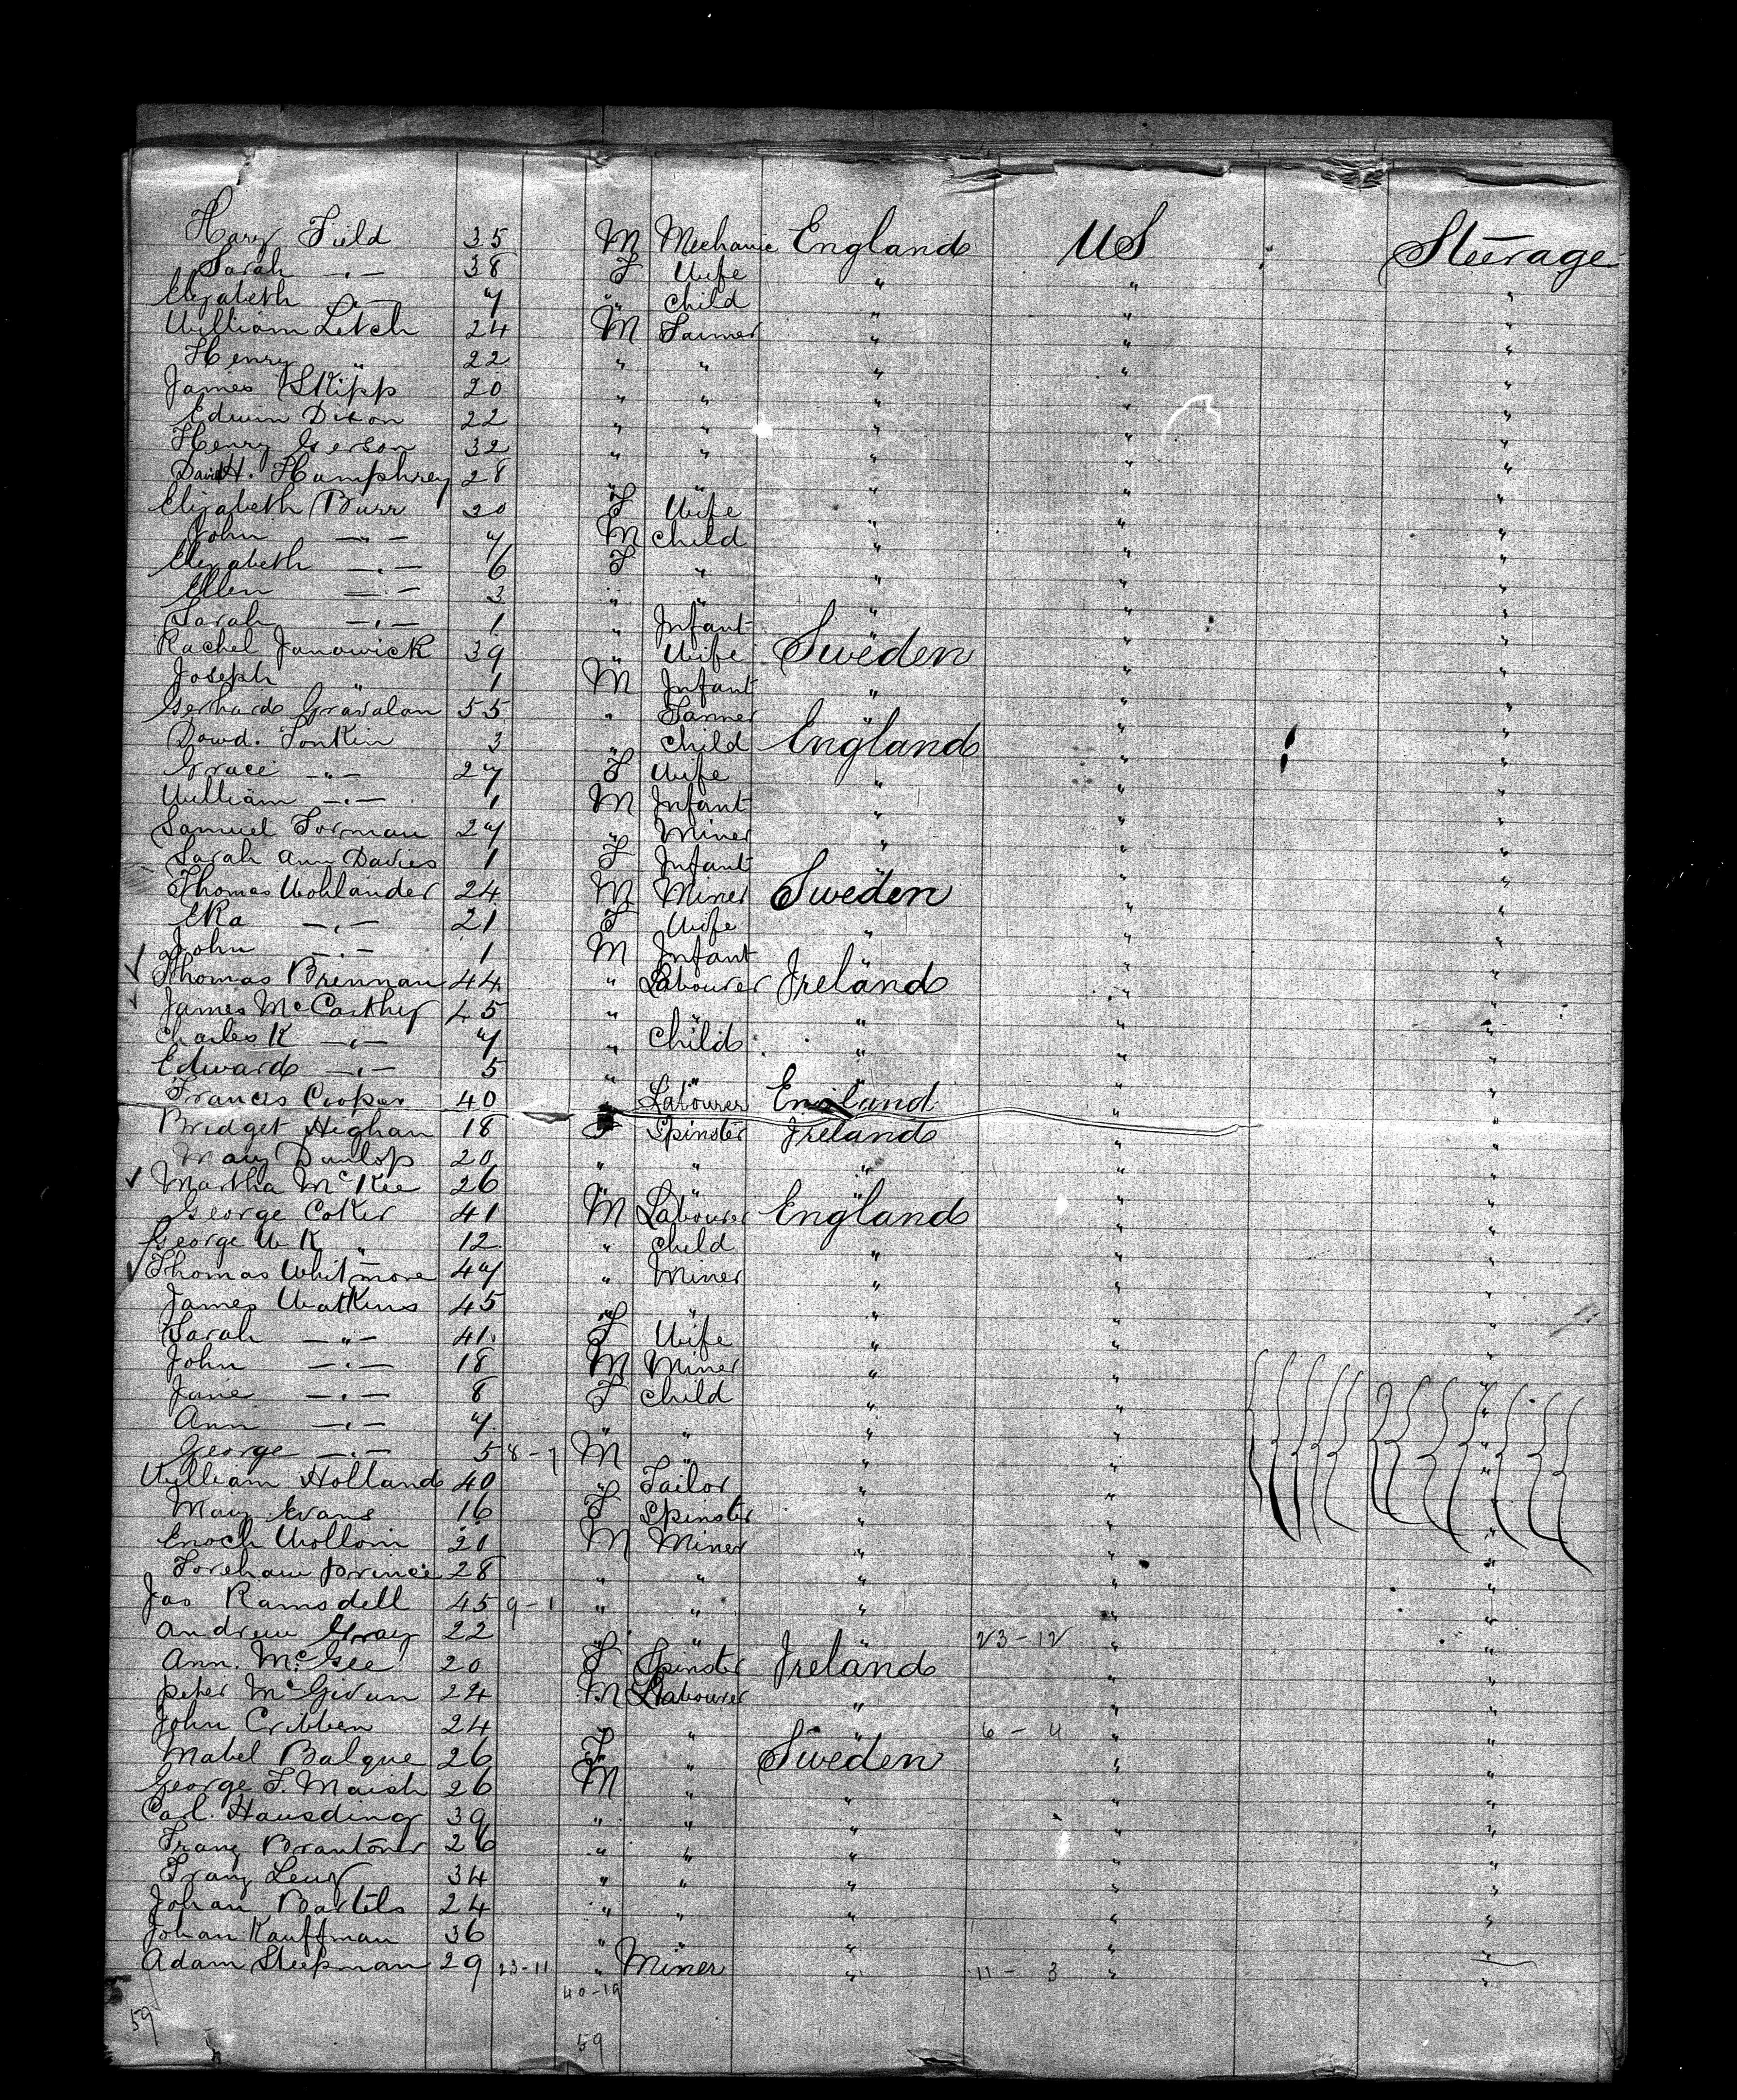 Harry Field 35 M Mechanic England US Steerage
Sarah —"— 38 F Wife " " "
Elizabeth —"— 7 " Child " " "
William Letch 24 M Farmer " " "
Henry " 22 " " " " "
James Skipp 20 " " " " "
Edwin Dixon 22 " " " " "
Henry Gerson 32 " " " " "
David H. Humphrey 28 " " " " "
Elizabeth Burr 30 F Wife " " "
John —"— 7 M Child " " "
Elizabeth —"— 6 F " " " "
Ellen —"— 3 " " " " "
Sarah —"— 1 " Infant " " "
Rachel Janowick 39 " Wife Sweden " "
Joseph " 1 M Infant " " "
Gerhard Gravalan 55 " Farmer " " "
Dowd. Tonkin 3 " Child England " "
Grace —"— 27 F Wife " " "
William —"— 1 M Infant " " "
Samuel Forman 27 " Miner " " "
Sarah Ann Davies 1 F Infant " " "
Thomas Wohlander 24 M Miner Sweden " "
Eka —"— 21 F Wife " " "
John —"— 1 M Infant " " "
✓ Thomas Brennan 44 " Labourer Ireland " "
✓ James McCarthy 45 " " " " "
Charles K —"— 7 " Child " " "
Edward —"— 5 " " " " "
Francis Cooper 40 " Labourer England " "
Bridget Highan 18 F Spinster Ireland " "
Mary Dunlop 20 " " " " "
✓ Martha McKee 26 " " " " "
George Coker 41 M Labourer England " "
George W K " 12 " Child " " "
✓ Thomas Whitmore 47 " Miner " " "
James Watkins 45 " " " " "
Sarah —"— 41 F Wife " " "
John —"— 18 M Miner " " "
Jane —"— 8 F Child " " "
Ann —"— 7 " " " " "
George —"— 5 8-7 M " " " "
William Holland 40 " Tailor " " "
Mary Evans 16 F Spinster " " "
Enoch Wollom 21 M Miner " " "
Foreham Prince 28 " " " " "
Jas Ramsdell 45 9-1 " " " " "
Andrew Gray 22 " " " 23-12 " "
Ann. McGee 20 F Spinster Ireland " "
Peter McGivan 24 M Labourer " " "
John Cribben 24 " " " 6-4 " "
Mabel Balque 26 F " Sweden " "
George F. Maish 26 M " " " "
Carl. Hausdinor 39 " " " " "
Franz Brantoner 26 " " " " "
Franz Leuf 34 " " " " "
Johan Bartels 24 " " " " "
Johan Kauffman 36 " " " " "
Adam Steepman 29 23-11 " Miner " 11-3 " "
40-19
59 59